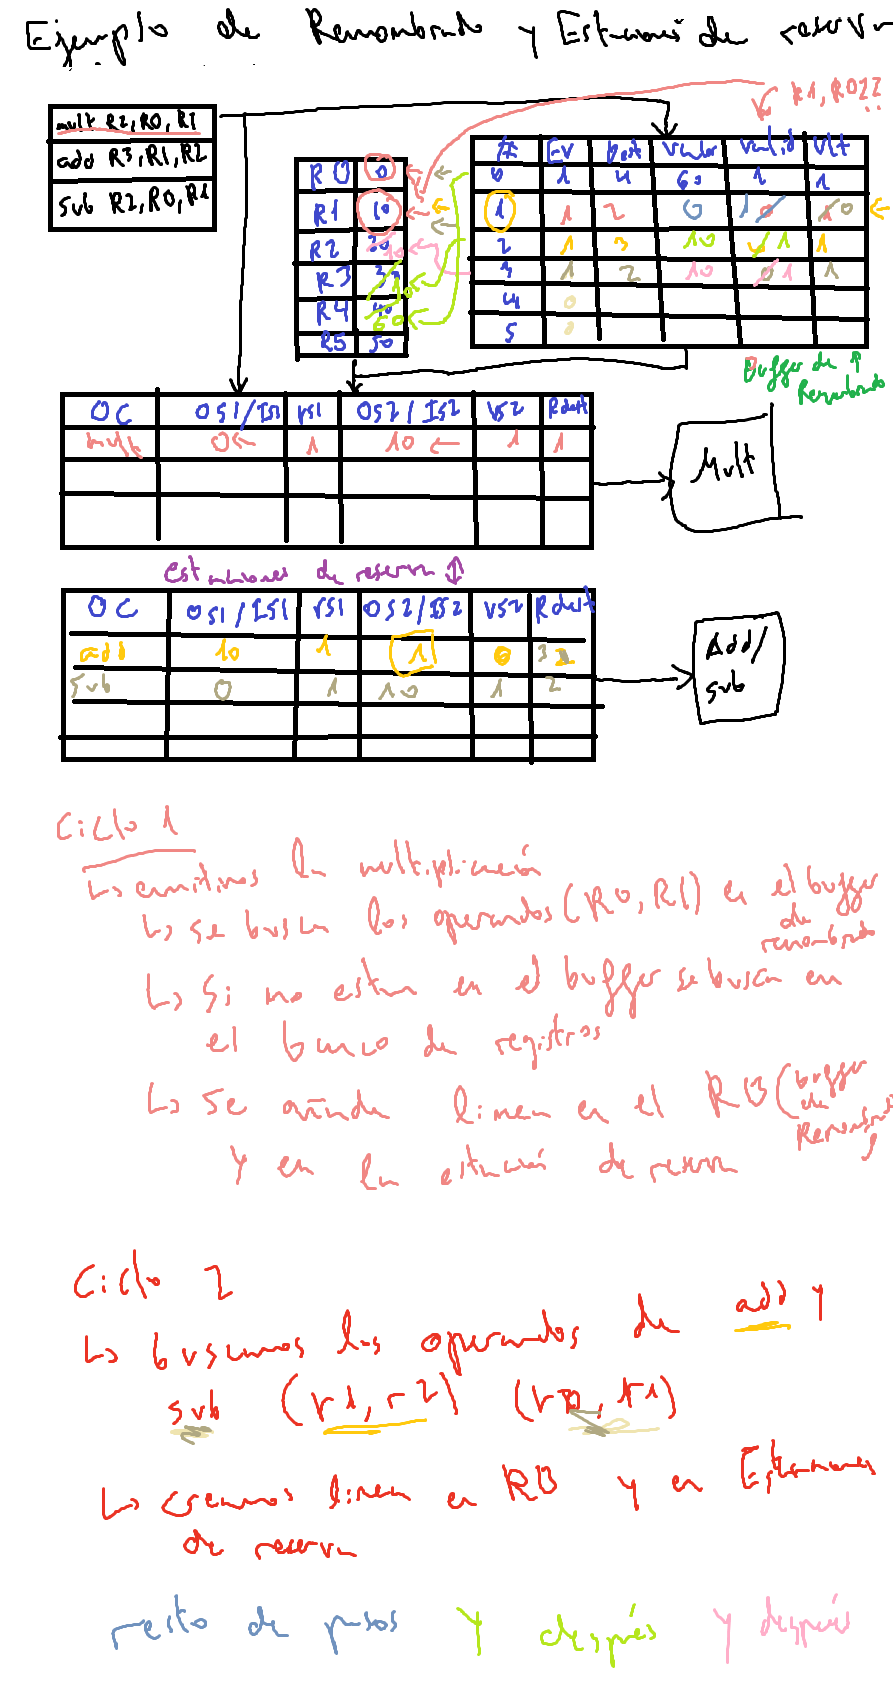 Ejemplo de Renombrado y Estaciones de reserva
R1, R0??
mult R2, R0, R1
add R3, R1, R2
sub R2, R0, R1
R0 0
R1 10
R2 30 10
R3 10
R4 40 60
R5 50
# EV Dest Valor Valid Ult
0 1 4 60 1 1
1 1 2 0 1 0 1 0
2 1 3 10 0 1 1
3 1 2 10 0 1 1
4 0
5 0
Buffer de Renombrado
OC OS1/IS1 VS1 OS2/IS2 VS2 Rdest
mult 0 1 10 1 1
Mult
estaciones de reserva
OC OS1/IS1 VS1 OS2/IS2 VS2 Rdest
add 10 1 1 0 3 2
sub 0 1 10 1 2
Add/
sub
Ciclo 1
↳ emitimos la multiplicación
↳ se buscan los operandos (R0, R1) en el buffer de renombrado
↳ Si no estan en el buffer se buscan en
el banco de registros
↳ Se añade linea en el RB (buffer de Renombrado)
y en la estación de reserva
Ciclo 2
↳ buscamos los operandos de add y
sub (r1, r2) (r0, r1)
↳ creamos linea en RB y en Estaciones
de reserva
resto de pasos y después y después